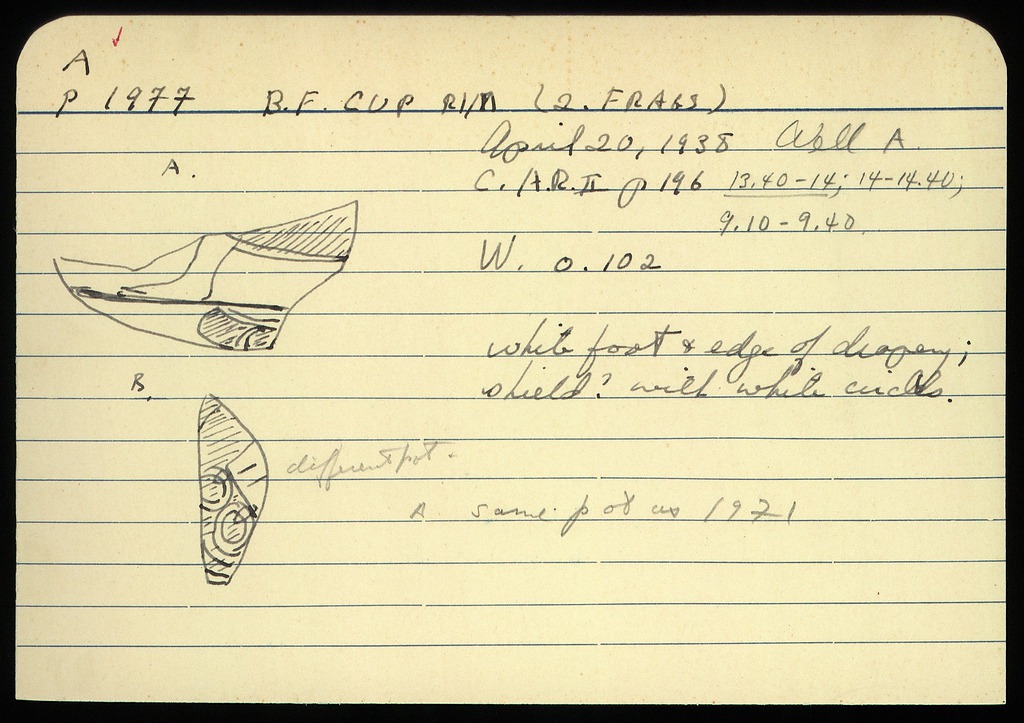 A
P 1977 B.F. CUP RIM (2. FRAGS)
April 20, 1938 Well A
A.
C. H.R. II p 196 13.40-14; 14-14.40;
9.10-9.40.
W. 0.102
white foot & edge of drapery;
shield? with white circles.
B.
different pot.
A same pot as 1971